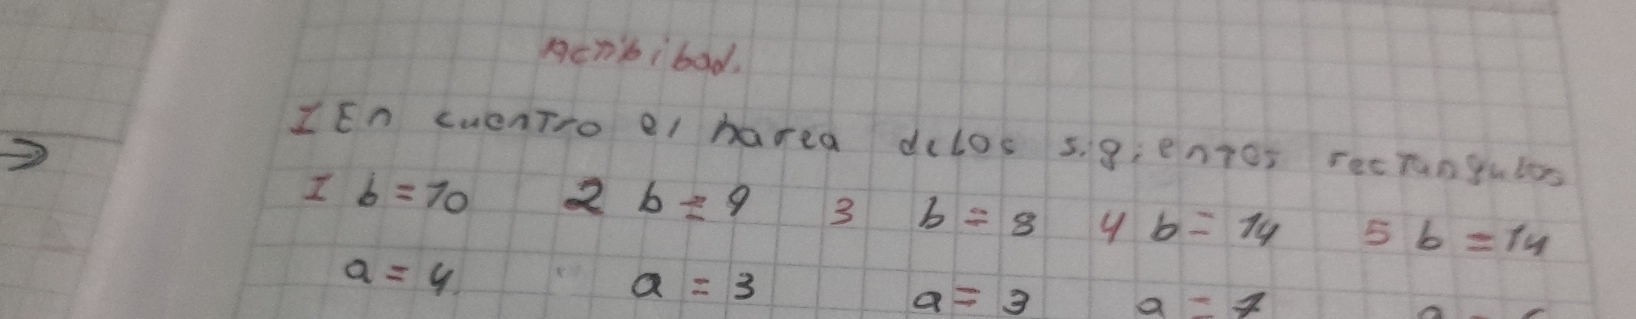 Actibibad.
I En cuentro el harea delos sigientes rectangulos
I b = 10 2 b = 9 3 b = 8 4 b = 14 5 b = 14
a = 4 a = 3 a = 3 a = 7